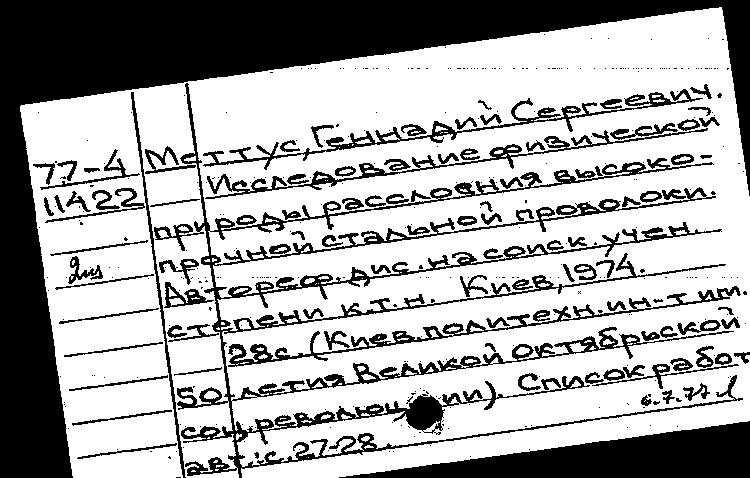 Меттус, Геннадий Сергеевич.
77-4
Исследование физической
11422
природы расслоения высоко-
прочной стальной проволоки.
Автореф. дис. на соиск. учен.
степени к.т.н. Киев, 1974.
28с. (Киев. политехн. ин-т им.
50-летия Великой Октябрьской
соц. революции). Список работ
авт.: с. 27-28.
6.7.77